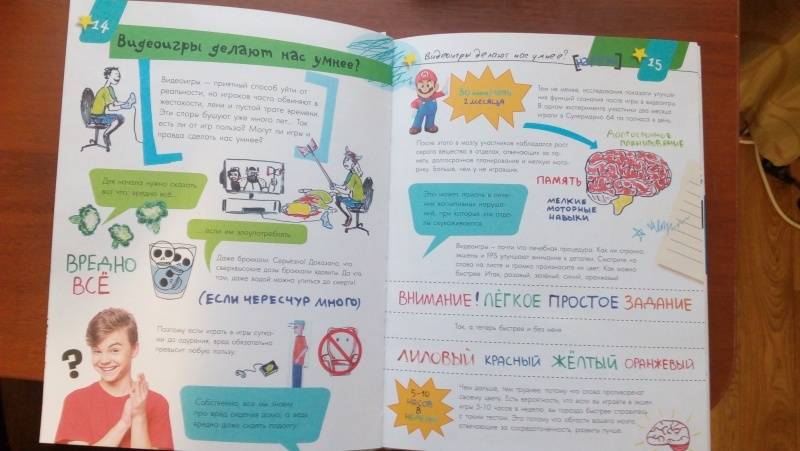 14
Видеоигры делают нас умнее?
Видеоигры — приятный способ уйти от
реальности, но игроков часто обвиняют в
жестокости, лени и пустой трате времени.
Эти споры бушуют уже много лет... Так
есть ли от игр польза? Могут ли игры и
правда сделать нас умнее?
Для начала нужно сказать
вот что: вредно всё...
... если им злоупотреблять.
Даже брокколи. Серьёзно! Доказано, что
сверхвысокие дозы брокколи ядовиты. Да что
там, даже водой можно упиться до смерти!
ВРЕДНО
ВСЁ
(ЕСЛИ ЧЕРЕСЧУР МНОГО)
Поэтому если играть в игры сутка-
ми до одурения, вред обязательно
превысит любую пользу.
?
Собственно, все мы знаем
про вред сидения дома, а ведь
вредно даже сидеть подолгу!
Видеоигры делают нас умнее?
15
30 мин/день
2 месяца
Тем не менее, исследования показали улучше-
ния функций сознания после игры в видеоигры.
В одном эксперименте участники два месяца
играли в Супермарио 64 по полчаса в день.
После этого в мозгу участников наблюдался рост
серого вещества в отделах, отвечающих за па-
мять, долгосрочное планирование и мелкую мото-
рику. Больше, чем у не игравших.
ДОЛГОСРОЧНОЕ
ПЛАНИРОВАНИЕ
ПАМЯТЬ
МЕЛКИЕ
МОТОРНЫЕ
НАВЫКИ
Это может помочь в лече-
нии когнитивных наруше-
ний, при которых эти отде-
лы скукоживаются.
Видеоигры — почти что лечебная процедура. Как ни странно,
экшены и FPS улучшают внимание к деталям. Смотрите на
слова на листе и громко произносите их цвет. Как можно
быстрее. Итак, розовый, зелёный, синий, оранжевый!
ВНИМАНИЕ! ЛЁГКОЕ ПРОСТОЕ ЗАДАНИЕ
Так, а теперь быстрее и без меня
ЛИЛОВЫЙ КРАСНЫЙ ЖЁЛТЫЙ ОРАНЖЕВЫЙ
5-10
ЧАСОВ
В
НЕДЕЛЮ
Чем дальше, тем труднее, потому что слова противоречат
своему цвету. Есть вероятность, что если вы играете в экшен
игры 5-10 часов в неделю, вы гораздо быстрее справитесь
с таким тестом. Это потому что области вашего мозга,
отвечающие за сосредоточенность, развиты лучше.